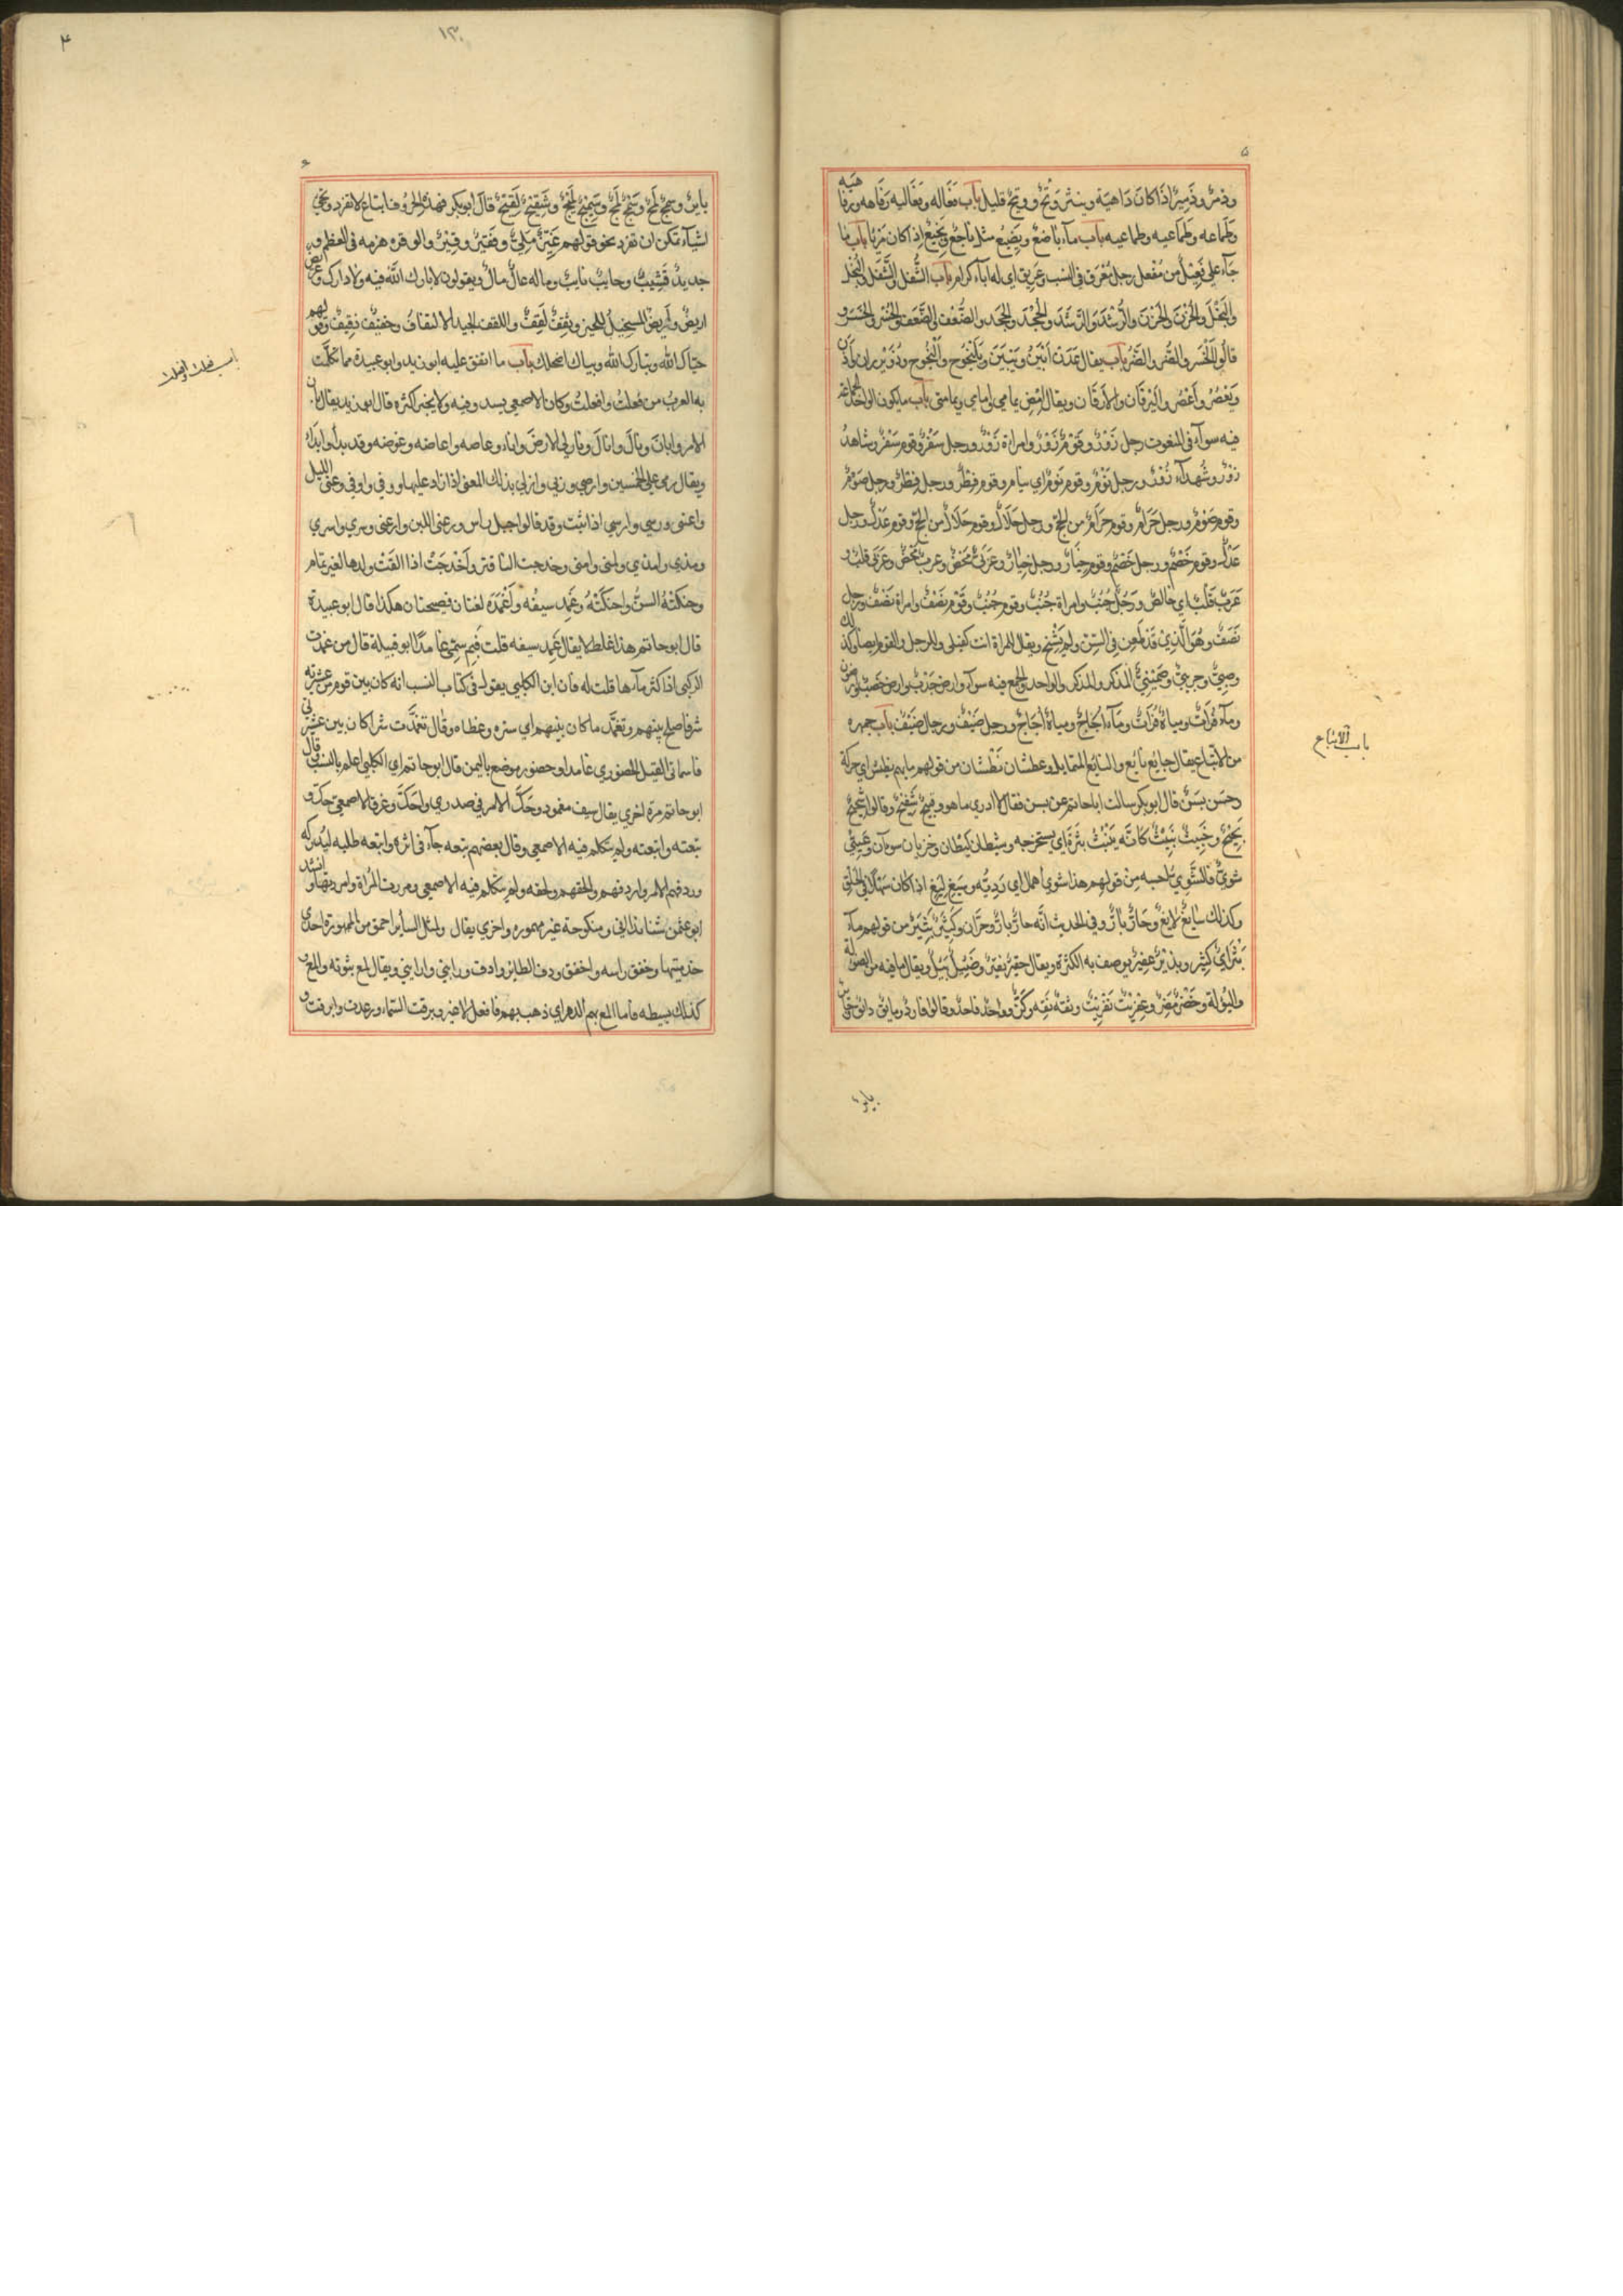 ٥
وذمر وذمير اذا كان داهية وينثر وتح ووتح قليل باب فعاله وفعاليه رفاهه ورفاهيه
وطماعه وطماعيه باب مآء باضع وبضيع مثل ناجع ونجيع اذا كان باب ما
جآء على فعيل من مفعل رجل معرق في النسب عريق اي له ابآء كرام باب الشغل والشغل والبخل
والبخل والحزن والحزن والرشد والرشد والجحد والجحد والضعف والضعف والخسر والخسر و
قالوا الخسر والضر والضر باب يقال عدن ابين ويبين ويلنجوج والنجوج
ويعصر واعصر واليرقان والارقان باب ما يكون الواحد والجماعه
فيه سوآء في النعوت رجل زور وقوم زور وامراة زور ورجل سفر وقوم سفر وشاهد
زور وشهدآء زور ورجل نوم وقوم نوم اي نيام وقوم فطر ورجل فطر ورجل صوم
وقوم صوم ورجل حرام وقوم حرام من الحج ورجل حلال وقوم حلال من الحج وقوم عدل ورجل
عدل وقوم خصم ورجل خصم وقوم خيار ورجل خيار وعربي محض وعرب محض وعربي قلب و
عرب قلب اي خالص ورجل جنب وامراة جنب وقوم جنب وقوم نصف وامراة نصف ورجل
نصف وهو الذي قد طعن في السن ولم يشخ ويقال للمراة انت كفيلي وللرجل والقوم ايضا وكذلك
وصيي وجريي وضميني المذكر والمذكر والواحد والجمع فيه سوآء وارض جدب وارض خصب وارضون
ومآء فرات ومياه فرات ومآء اجاج ومياه اجاج ورجل ضيف ورجال ضيف باب جمهره
من الاتباع يقال جايع نايع والنايع المتمايل وعطشان نطشان من قولهم ما به نطيش اي حركة
وحسن بسن قال ابوبكر سالت اباحاتم عن بسن فقال لا ادري ما هو وقبيح شقيح وقالوا شحيح
بحيح وخبيث نبيث كانه ينبث شره اي يستخرجه وشيطان ليطان وخزيان سوآن وعيي
شوي فالشوي احسبه من قولهم هذا شوي المال اي رديه وسيغ ليغ اذا كان سهلا في الحلق
وكذلك سايغ لايغ وحار يار وفي الحديث انه حار يار وحران وكثير بثير من قولهم مآء
بثر اي كثير وبذير عفير يوصف به الكثرة ويقال حقير نقير وضئيل بئيل ويقال ما فيه من الضولة
والبؤلة وخضر مضر وعفريت نفريت وثقه نقه وكز وواحد فاحد وقالوا فارد ومايق دايق
باير
باب الاتباع
۴
۱۳
۶
باير وسمج لمج وسمج لمج وسميج لميج وشقيح لقيح قال ابوبكر فهذه الحروف اتباع لا تفرد وتجي
اشيآء تمكن ان تفرد نحو قولهم غني ملي وفقير وقير والوقره هزمه في العظم و
جديد قشيب وخايب نايب وماله عال مال ويقولون لا بارك الله فيه ولا دارك وعريض
اريض والاريض وثقف لقف واللقف الجيد الالتقاف وخفيف ذفيف وقولهم
حياك الله وبياك اضحك باب ما اتفق عليه ابوزيد وابوعبيدة مما تكلمت
به العرب من فعلت وافعلت وكان الاصمعي يشدد فيه ولا يجيز اكثره قال ابوزيد يقال بان
الامر وابان ونال وانال ونار لي الارض وانار وعاصه واعاضه وعوضه وقد بدأ وابدا
ويقال رمى على الخمسين وارمى وربي واربى بذلك المعنى اذا زاد عليها ووفي واوفى وغسى الليل
واغسى ورسي وارسي اذا ثبت وقد قالوا جبل راس ورغى اللبن وارغى وسري واسري
ومذي وامذي ومنى وامنى وخدجت الناقة واخدجت اذا القت ولدها لغير تمام
وحنكته السن واحنكته وغمد سيفه واغمده لغتان فصيحتان هكذا قال ابوعبيدة
قال ابوحاتم هذا غلط لا يقال غمد سيفه قلت فبم سمي غامدا ابو قبيلة قال من غمدت
الركي اذا كثر مآءها قلت له فان ابن الكلبي يقول في كتاب النسب انه كان بين قوم من عشيرته
شر فاصلح بينهم وتغمد ما كان بينهم اي ستره وغطاه وقال تغمدت شرا كان بين عشيرتي
فاسماني القيل الحضوري غامدا وحضور موضع باليمن قال ابوحاتم اي الكلبي اعلم بالنسب قال
ابوحاتم مرة اخري يقال سيف مغمود وحك الامر في صدري واحك وعرف الاصمعي حك و
تبعته واتبعته ولم يتكلم فيه الاصمعي وقال بعضهم تبعه جآء في اثره واتبعه طلبه ليدركه
وردفهم الامر واردفهم ولحقهم والحقه ولم يتكلم فيه الاصمعي ومهرت المراة وامهرتها وانشد
ابوعثمن ومنكوحة غير ممهوره واخري يقال والمثل السأير احمق من الممهورة احدي
خدمتيها وخفق راسه واخفق ودف الطاير وادف ورابني وارابني ويقال لمع بثوبه والمع
كذلك يبسطه فاما المع بهم الدهر اي ذهب بهم فافعل لا غير وبرقت السماء ورعدت وابرقت و
باب فعلت وافعلت